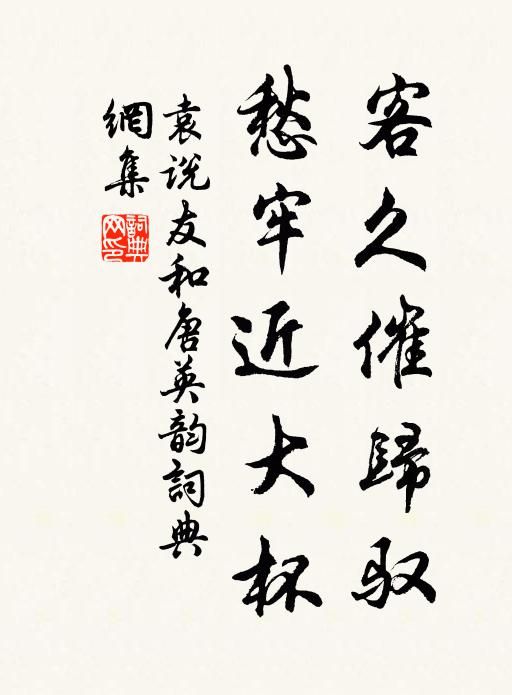 客久催歸馭
愁牢近大杯
袁说友和唐英韵詞典
網集
詞典網印